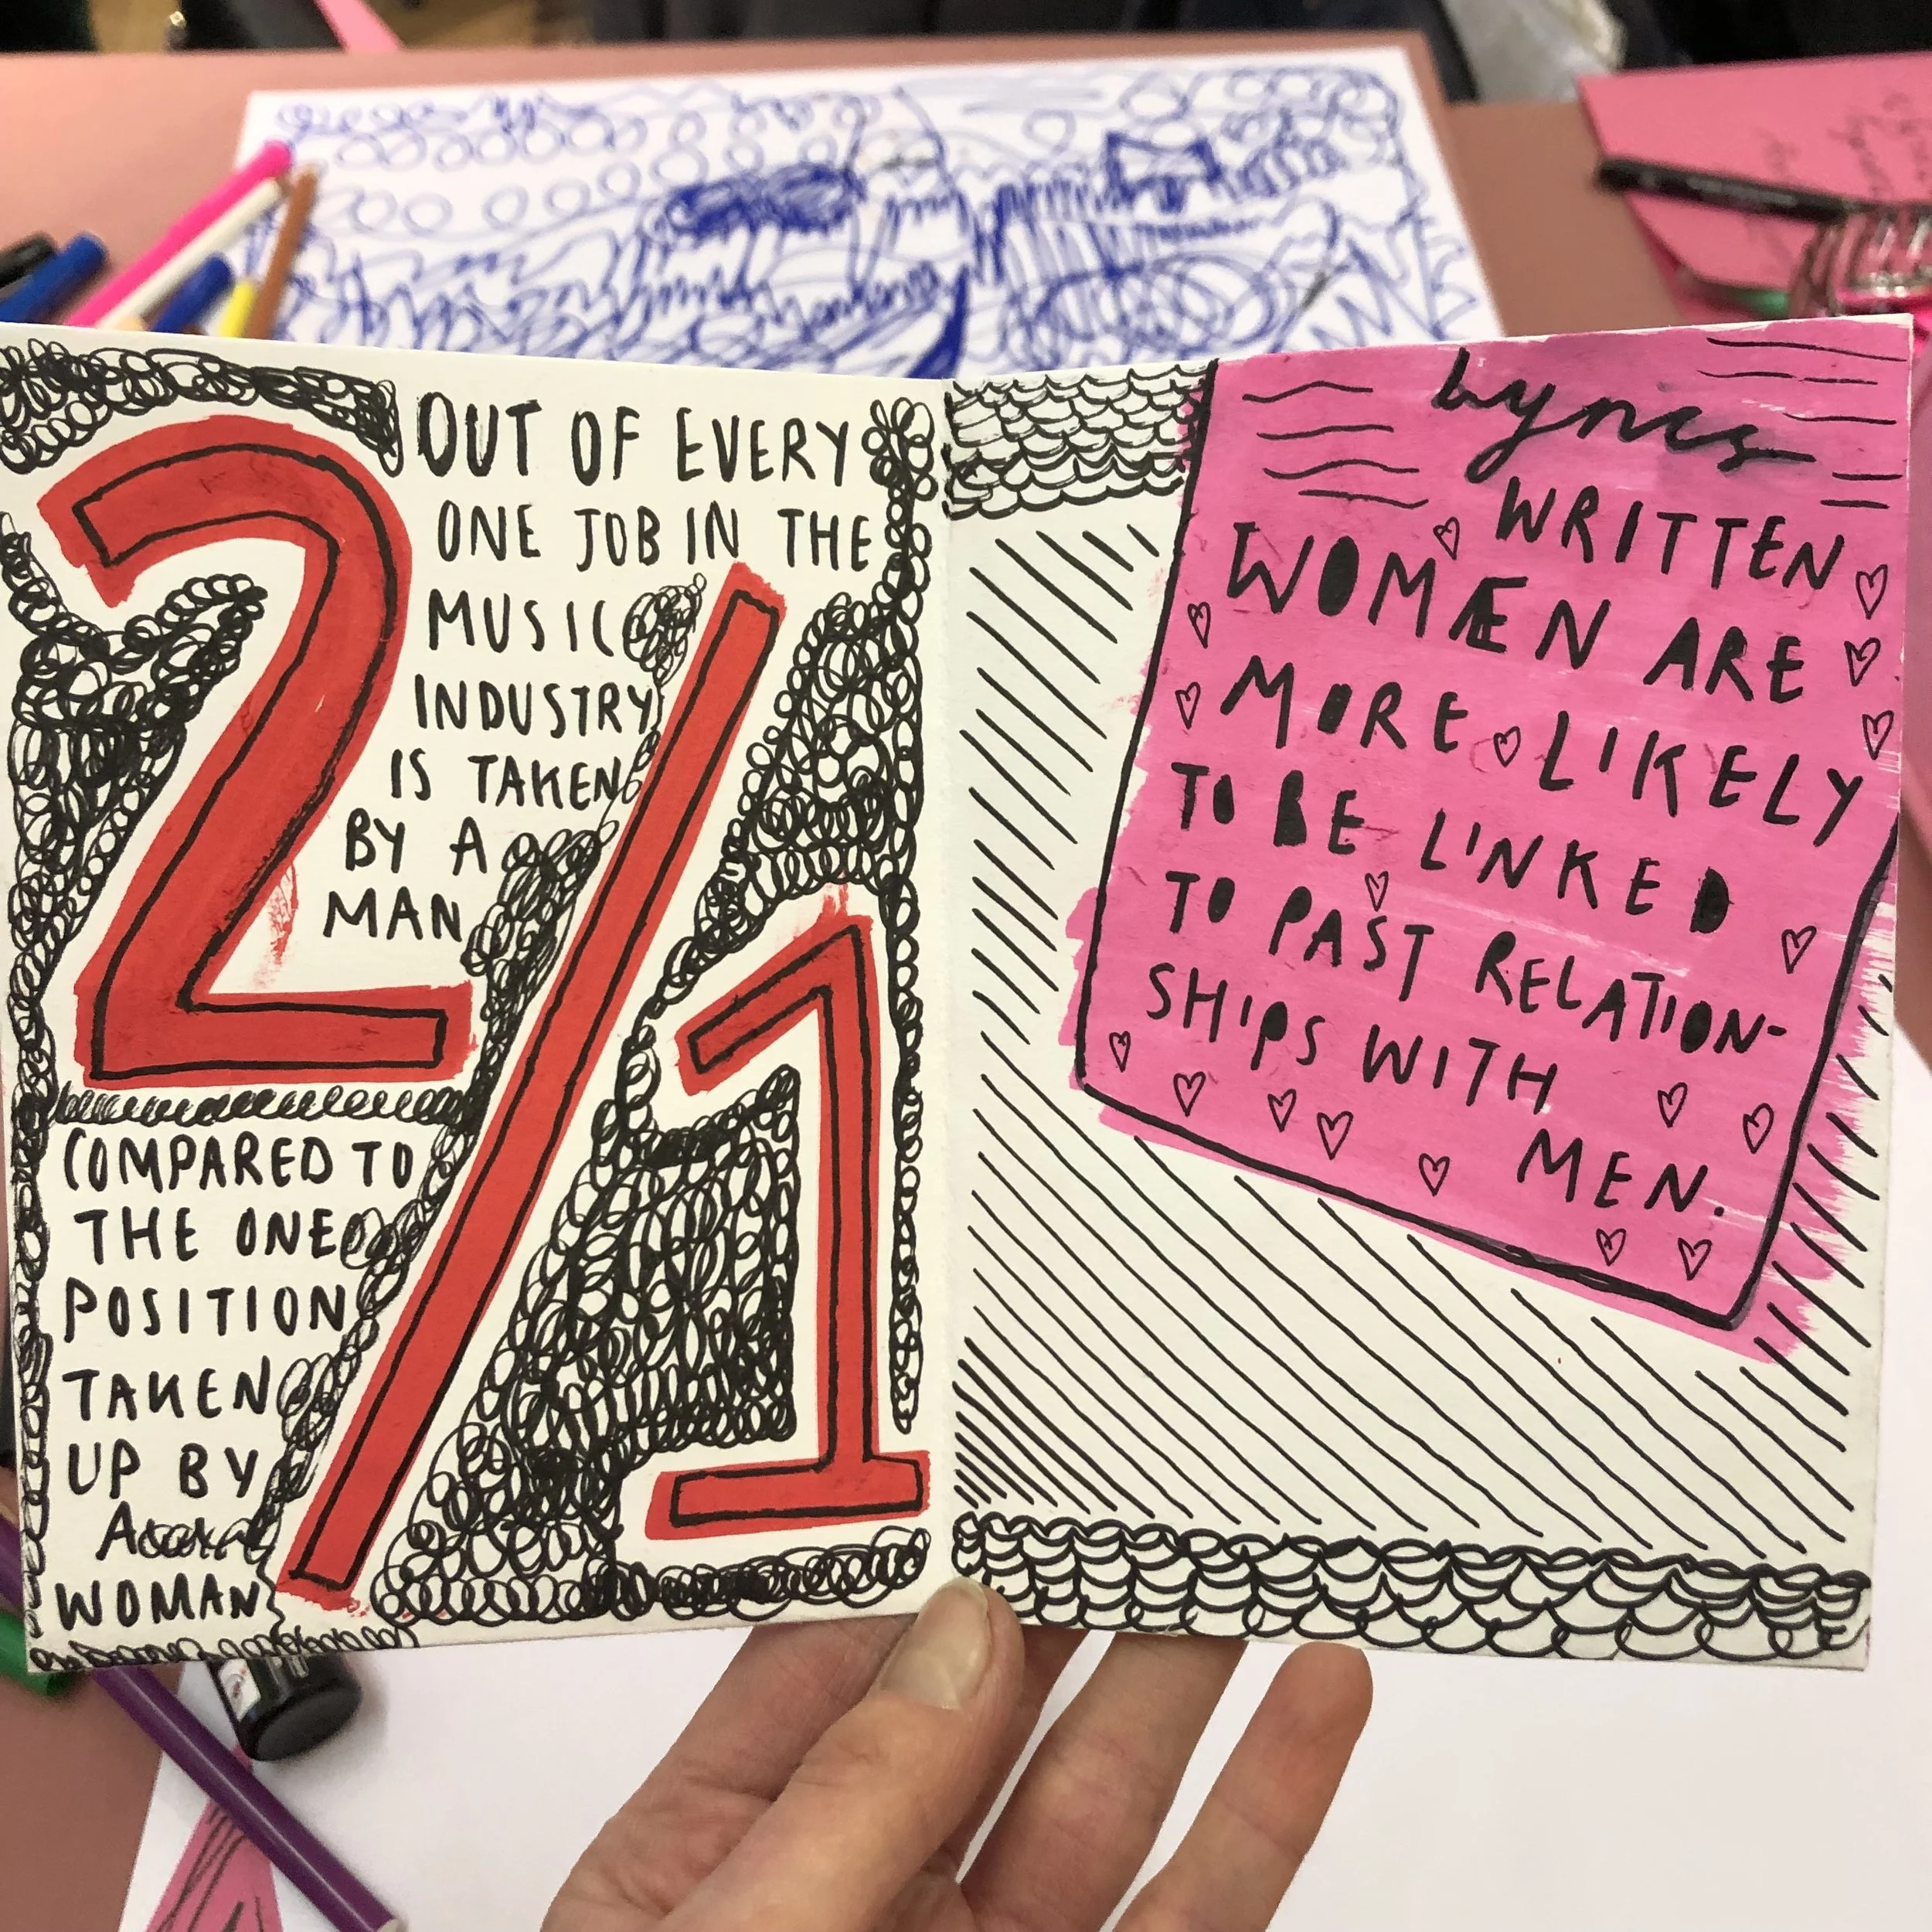 2/1
OUT OF EVERY
ONE JOB IN THE
MUSIC
INDUSTRY
IS TAKEN
BY A
MAN
COMPARED TO
THE ONE
POSITION
TAKEN
UP BY
A
WOMAN
Lyrics
WRITTEN
WOMÆN ARE
MORE LIKELY
TO BE LINKED
TO PAST RELATION-
SHIPS WITH
MEN.